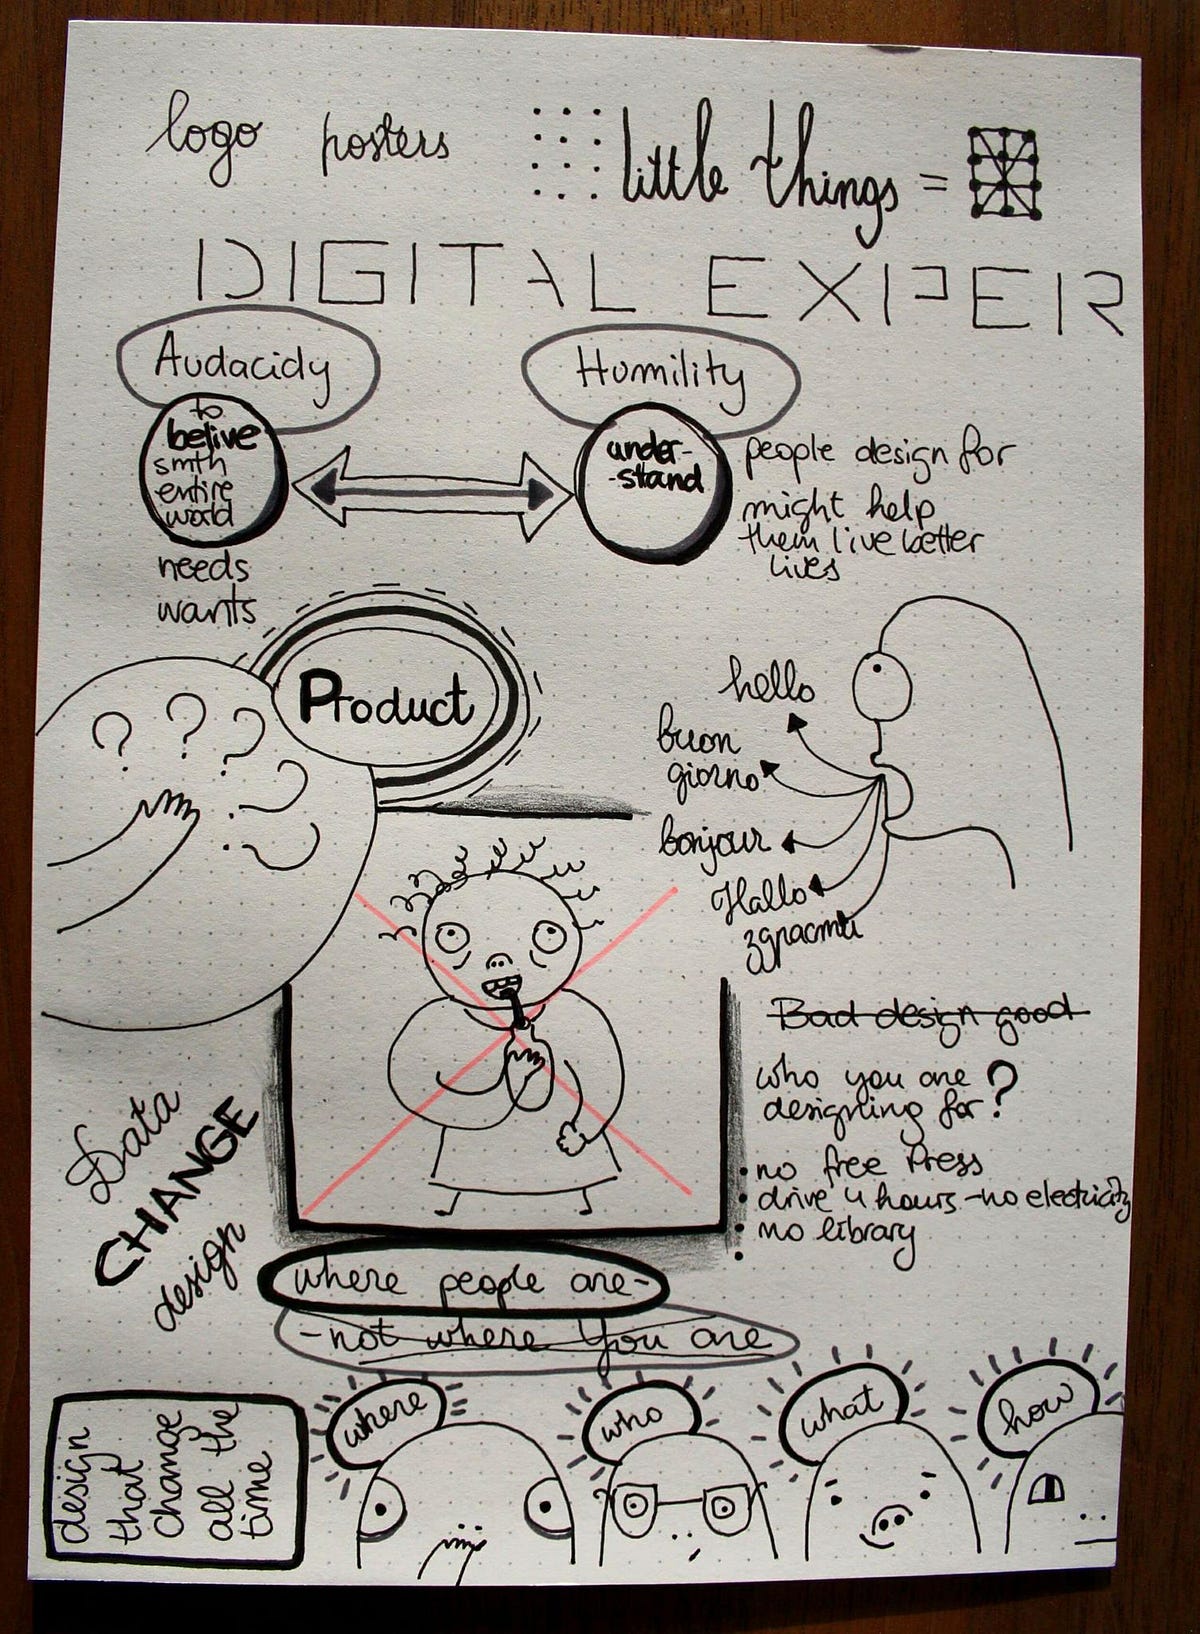 logo posters
little things =
DIGITAL EXPER
Audacidy
to
belive
smth
entire
world
needs
wants
Humility
under-
-stand
people design for
might help
them live better
lives
Product
? ? ?
hello
buon
giorno
bonjour
Hallo
здрасти
Bad design good
who you are
designing for?
• no free Press
• drive 4 hours - no electricity
• no library
•
Data
CHANGE
design
where people are-
-not where you are
design
that
change
all the
time
where
who
what
how